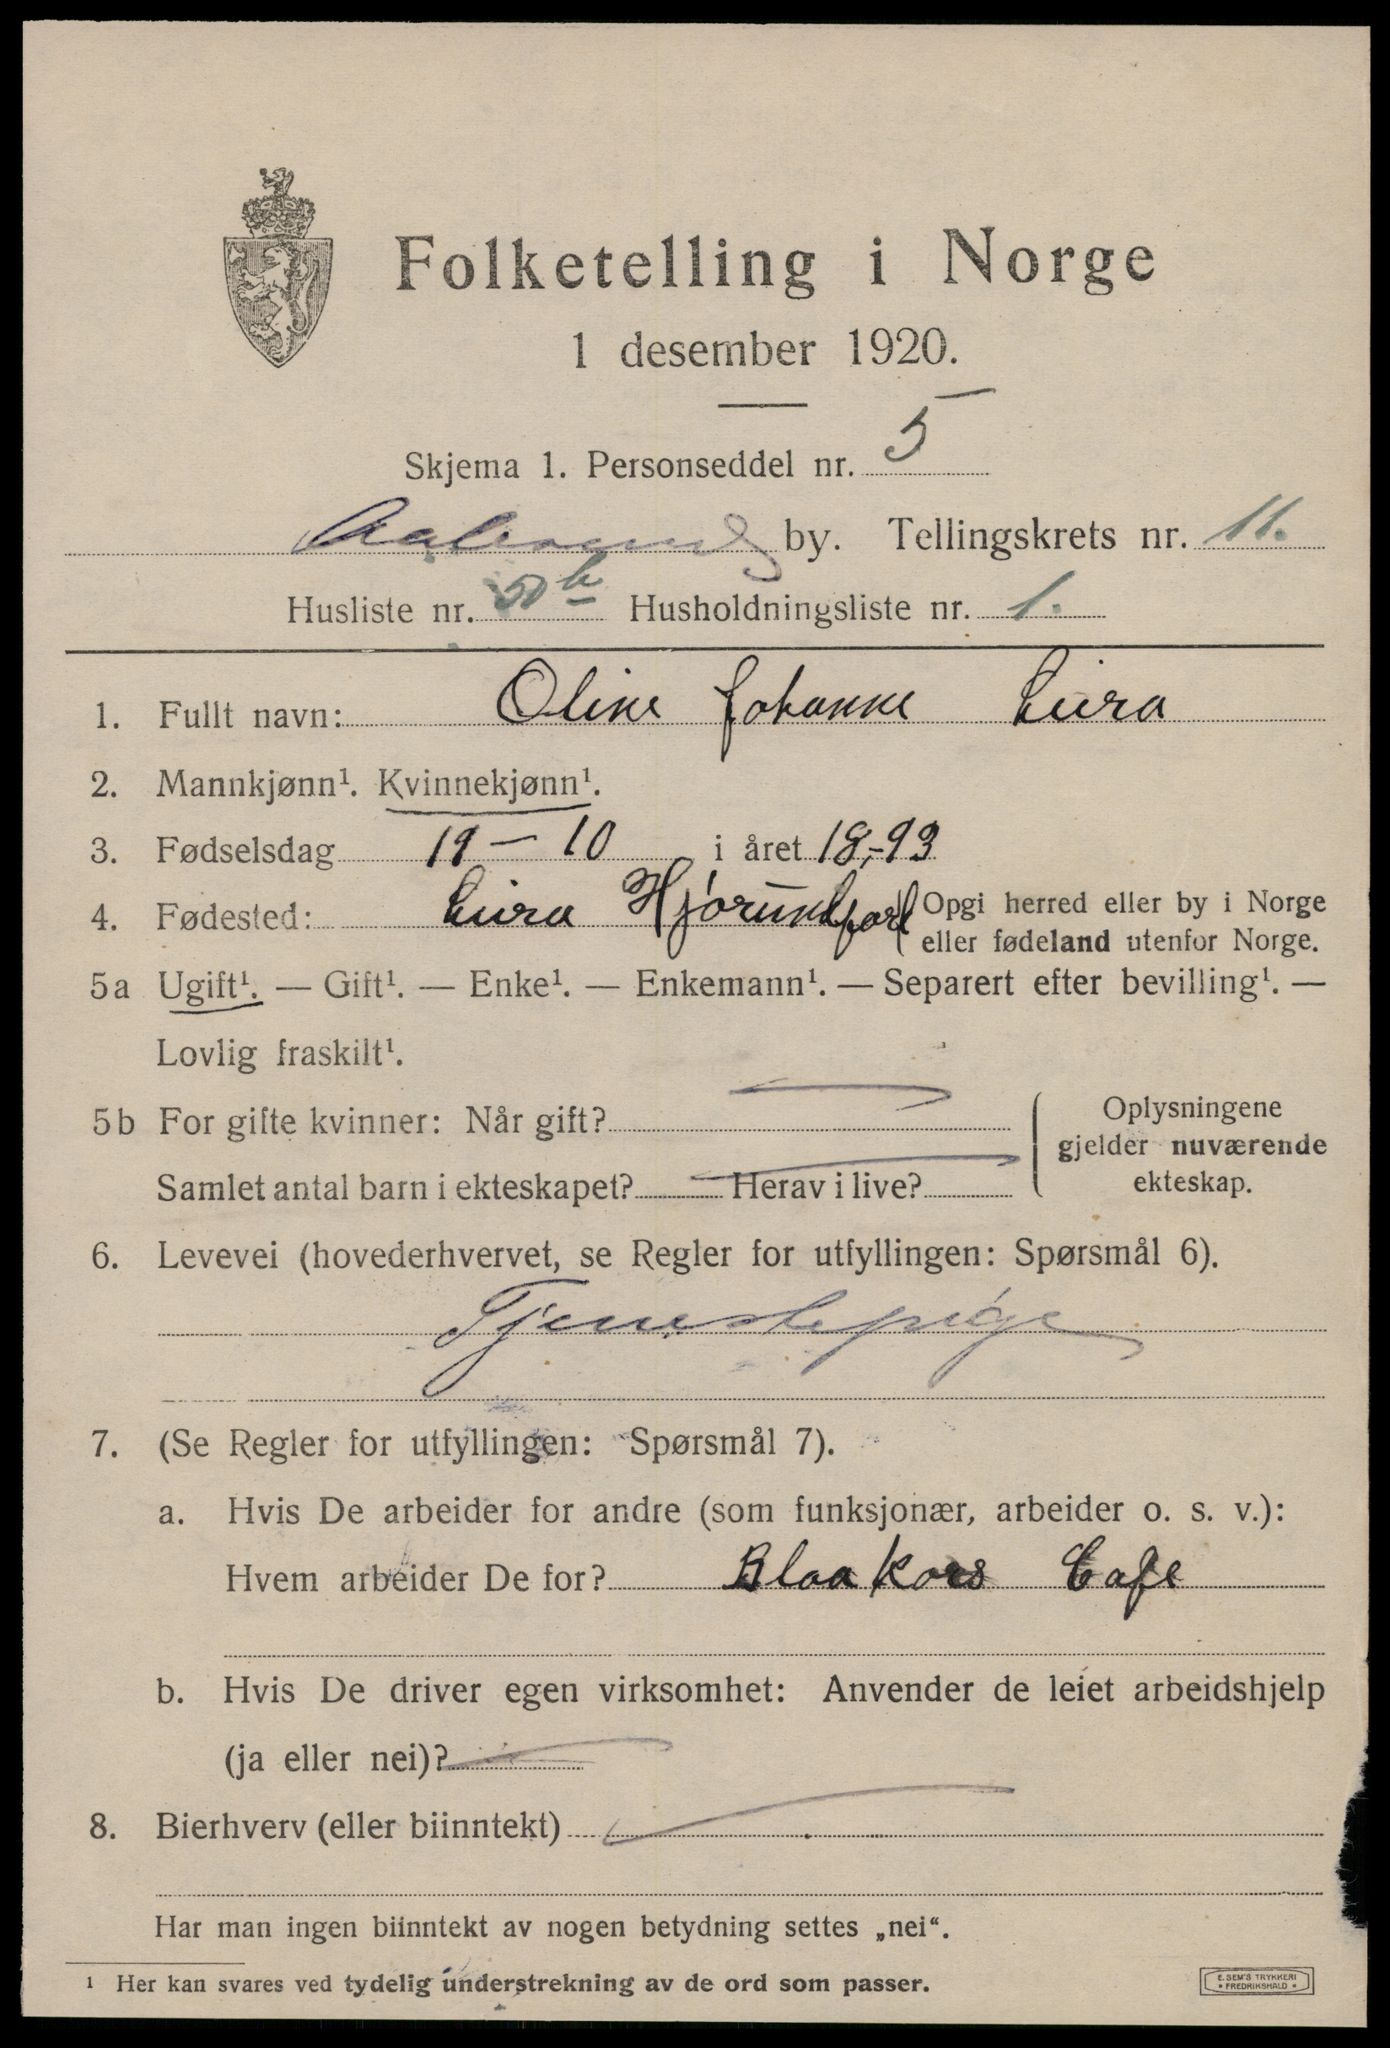 Folketelling i Norge
1 desember 1920.
Skjema 1. Personseddel nr. 5
Aalesund by. Tellingskrets nr. 11.
Husliste nr. 50b Husholdningsliste nr. 1.
1. Fullt navn: Oline Johanne Leira
2. Mannkjønn¹. Kvinnekjønn¹.
3. Fødselsdag 19 – 10 i året 18,-93
4. Fødested: Leira Hjørundfjord (Opgi herred eller by i Norge
eller fødeland utenfor Norge.
5a Ugift¹. — Gift¹. — Enke¹. — Enkemann¹. — Separert efter bevilling¹. —
Lovlig fraskilt¹.
5b For gifte kvinner: Når gift?
Samlet antal barn i ekteskapet? Herav i live?
Oplysningene
gjelder nuværende
ekteskap.
6. Levevei (hovederhvervet, se Regler for utfyllingen: Spørsmål 6).
Tjenestepige
7. (Se Regler for utfyllingen: Spørsmål 7).
a. Hvis De arbeider for andre (som funksjonær, arbeider o. s. v.):
Hvem arbeider De for? Blaa Kors Cafe
b. Hvis De driver egen virksomhet: Anvender de leiet arbeidshjelp
(ja eller nei)?
8. Bierhverv (eller biinntekt)
Har man ingen biinntekt av nogen betydning settes „nei“.
¹ Her kan svares ved tydelig understrekning av de ord som passer.
E. SEM'S TRYKKERI
• FREDRIKSHALD •